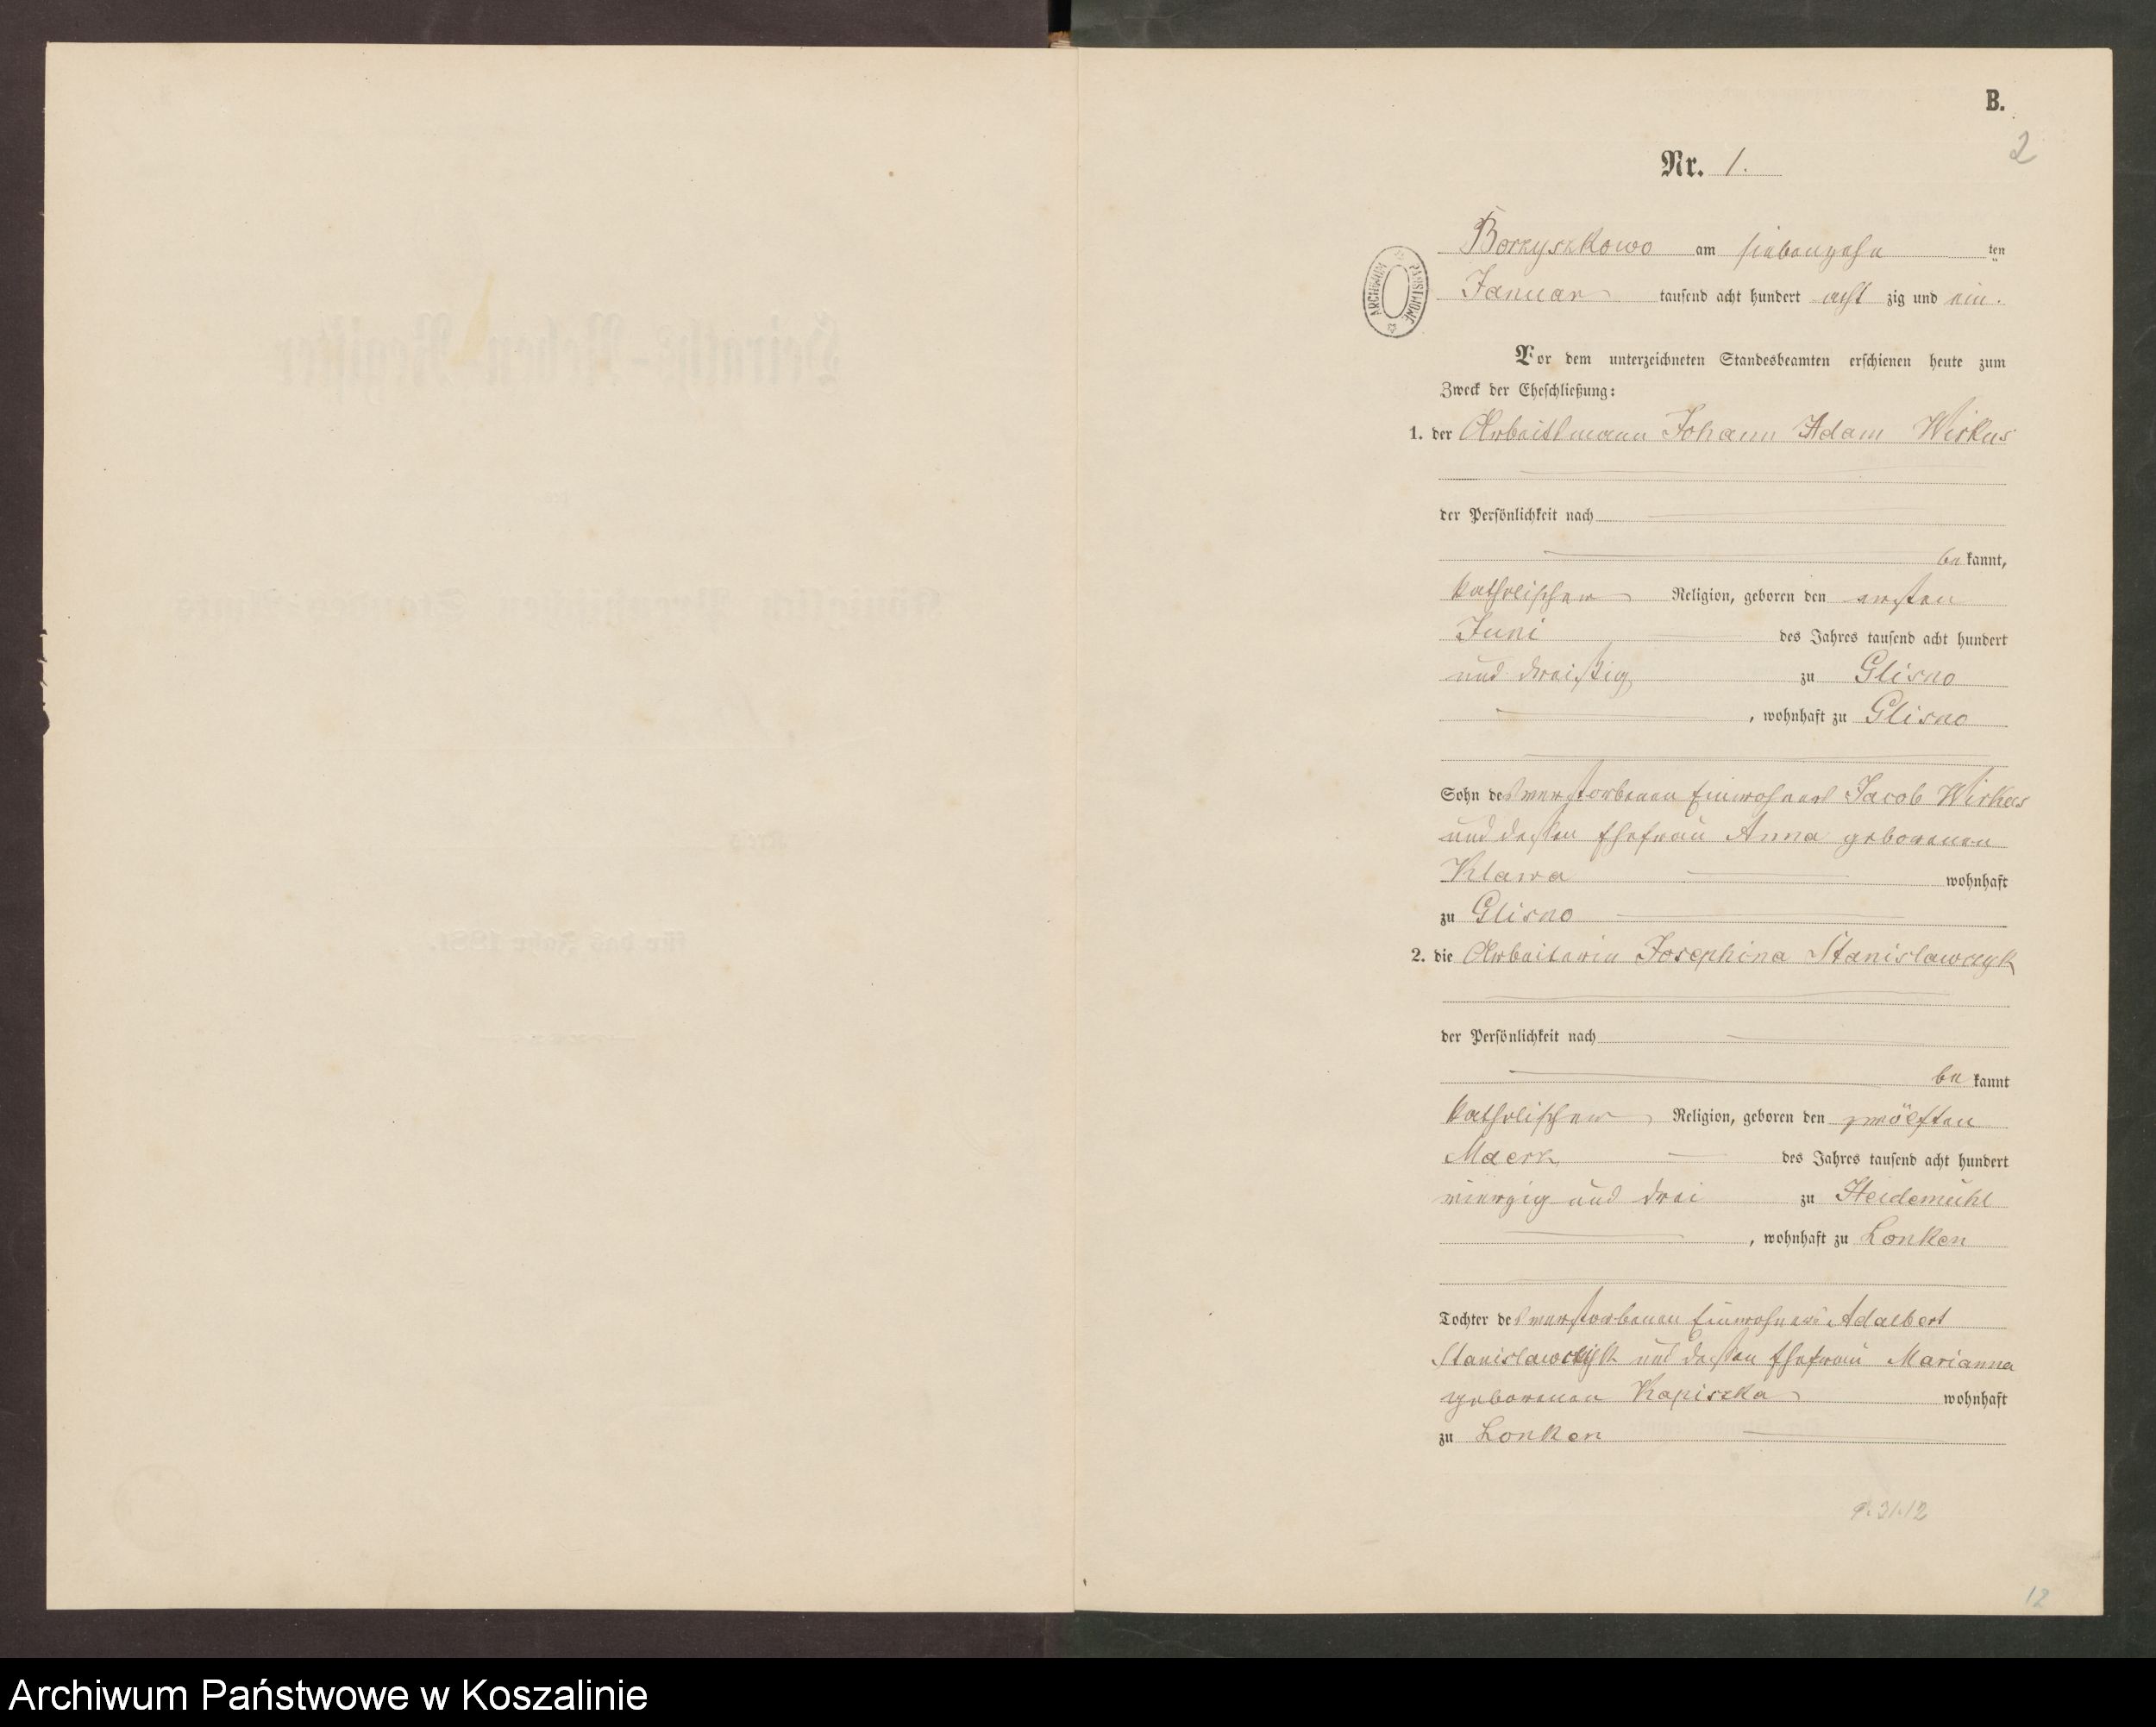 B.
2
Nr. 1.
Borzyszkowo am siebenzehn ten
Januar tausend acht hundert acht zig und ein.
ARCHIWUM PAŃSTWOWE
Vor dem unterzeichneten Standesbeamten erschienen heute zum
Zweck der Eheschließung:
1. der Arbeitsmann Johann Adam Wirkus
der Persönlichkeit nach
be kannt,
katholischer Religion, geboren den ersten
Juni des Jahres tausend acht hundert
und dreißig zu Glisno
, wohnhaft zu Glisno
Sohn des verstorbenen Einwohners Jacob Wirkus
und dessen Ehefrau Anna geborenen
Klawa wohnhaft
zu Glisno
2. die Arbeiterin Josephina Stanislawczyk
der Persönlichkeit nach
be kannt
katholischer Religion, geboren den zwölften
Maerz des Jahres tausend acht hundert
vierzig und drei zu Heidemühl
, wohnhaft zu Lonken
Tochter des verstorbenen Einwohners Adalbert
Stanislawczyk und dessen Ehefrau Marianna
geborenen Kapiszka wohnhaft
zu Lonken
12
Archiwum Państwowe w Koszalinie